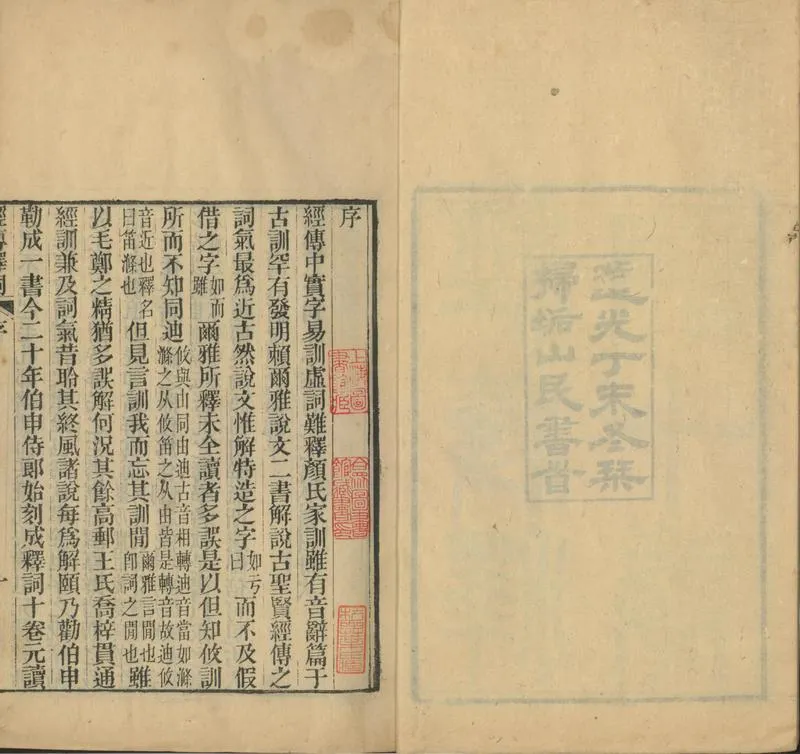 道光丁未冬栞
掃垢山民書首
序
經傳中實字易訓虛詞難釋顏氏家訓雖有音辭篇于
古訓罕有發明賴爾雅說文二書解說古聖賢經傳之
詞氣最爲近古然說文惟解特造之字如亏曰而不及假
借之字如而雖爾雅所釋未全讀者多誤是以但知攸訓
所而不知同迪攸與由同由迪古音相轉迪音當如滌滌之从攸笛之从由皆是轉音故迪攸
音近也釋名曰笛滌也但見言訓我而忘其訓閒爾雅言閒也卽詞之閒也雖
以毛鄭之精猶多誤解何況其餘高郵王氏喬梓貫通
經訓兼及詞氣昔聆其終風諸說每爲解頤乃勸伯申
勒成一書今二十年伯申侍郞始刻成釋詞十卷元讀
經傳釋詞 序 一